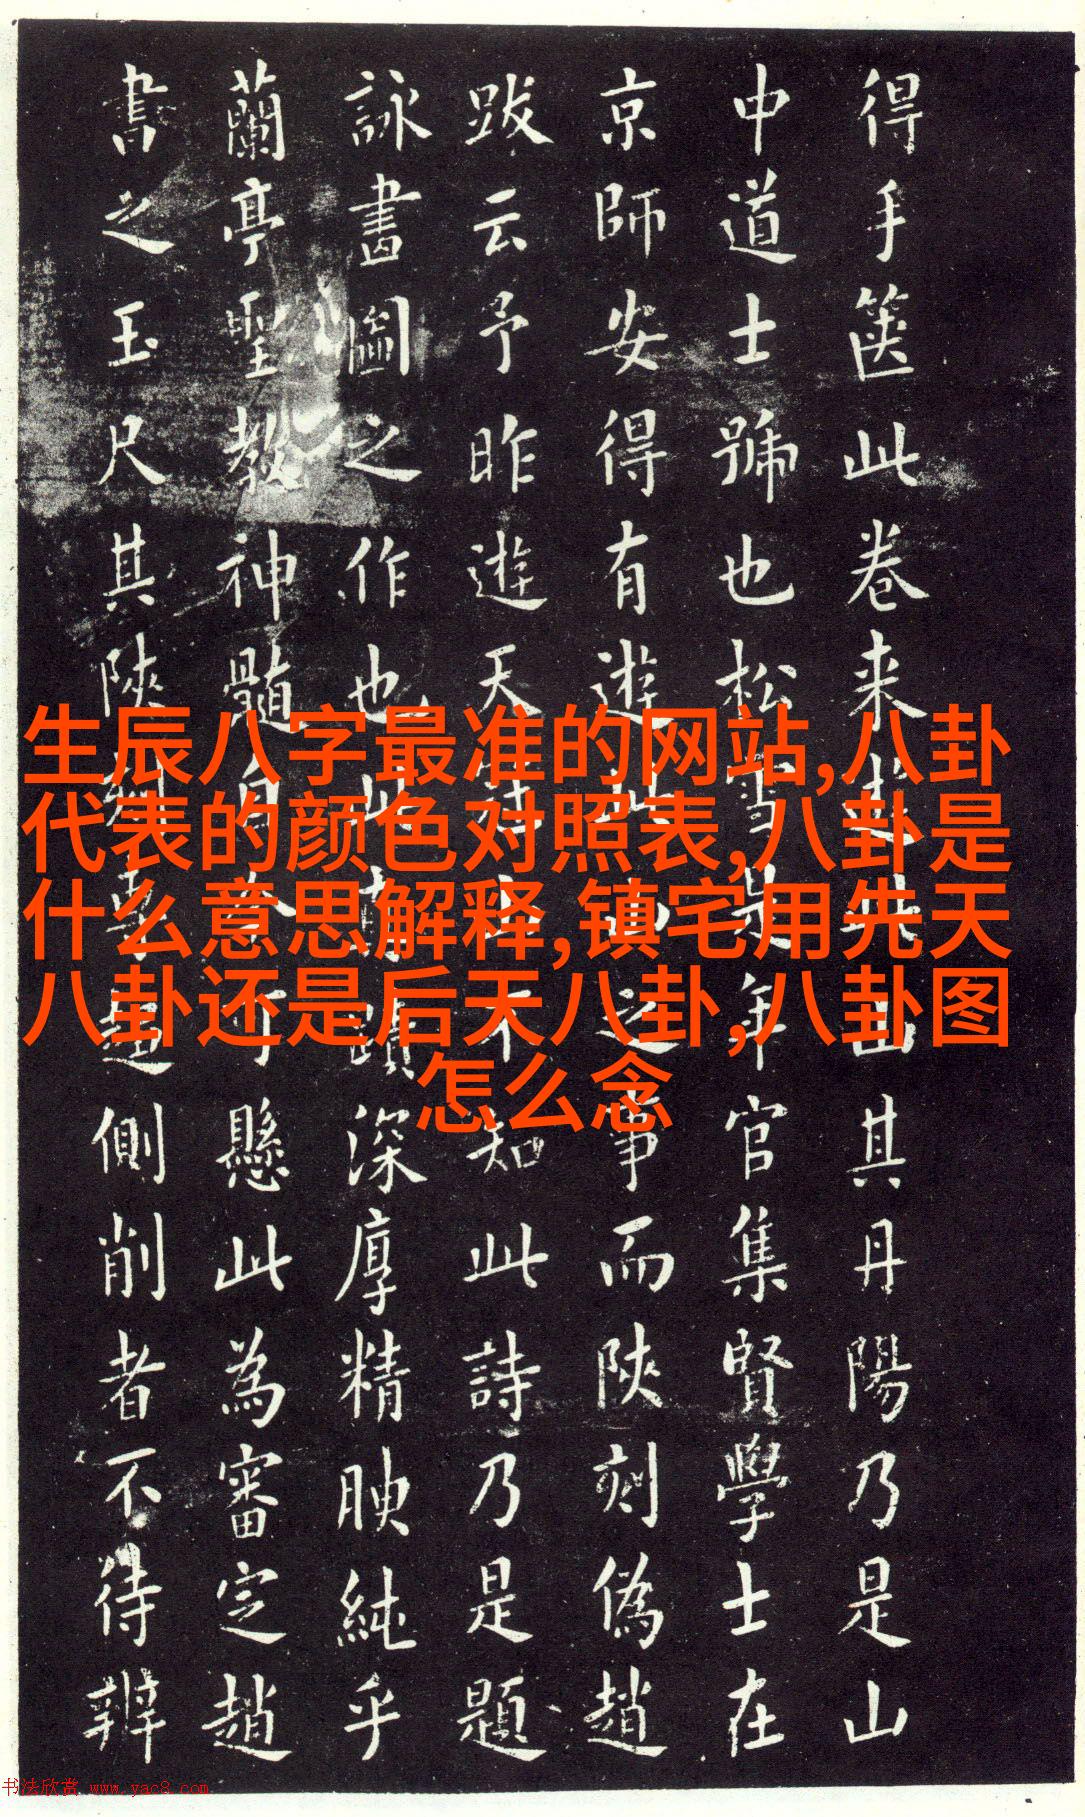 得手箧此卷来其丹陽乃是山
中道士號也松雪是年官集賢學士在
京師安得有遊此山之事而陝刻偽趙
跋云予昨遊天不知此詩乃是題
詠書圖之作也此蹟深厚精腴純乎
蘭亭聖教神髓自可懸此為審定趙
書之玉尺其陝刻專逞側削者不待辨
生辰八字最准的网站,八卦
代表的颜色对照表,八卦是
什么意思解释,镇宅用先天
八卦还是后天八卦,八卦图
怎么念
书法欣赏 www.yac8.com